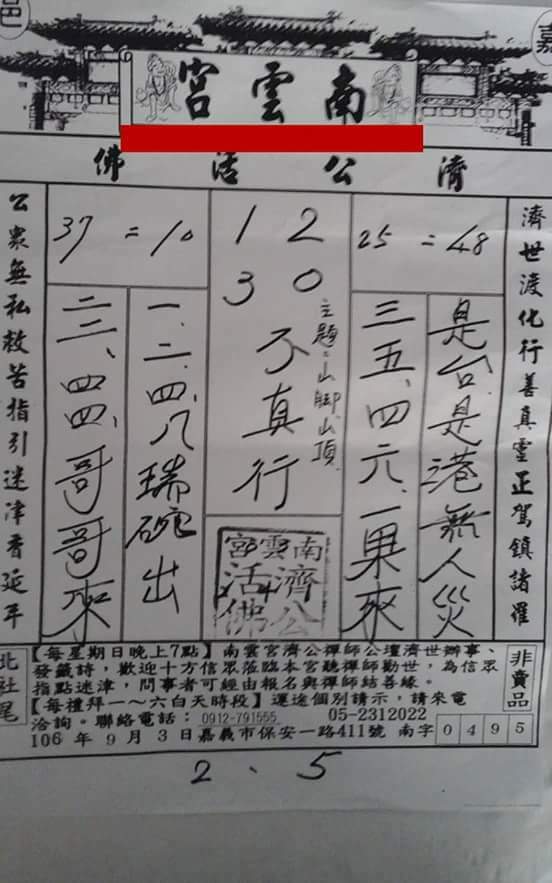 邑
嘉
南雲宮
濟公活佛
濟世渡化行善真靈正駕鎮諸羅
25=48
是台是港無人災
三五、四六、一果來
12
30
主題:山腳山頂
不真行
南雲宮
濟公
活佛
37=10
一、二、四、八瑞碗出
二三、四四、哥哥來
公眾無私救苦指引迷津香延年
北社尾
【每星期日晚上7點】南雲宮濟公禪師公壇濟世辦事、
發籤詩，歡迎十方信眾蒞臨本宮聽禪師勸世，為信眾
指點迷津，問事者可經由報名與禪師結善緣。
【每禮拜一～六白天時段】運途個別請示，請來電
洽詢。聯絡電話：0912-791555、05-2312022
106年9月3日嘉義市保安一路411號 南字 0495
非賣品
2、5